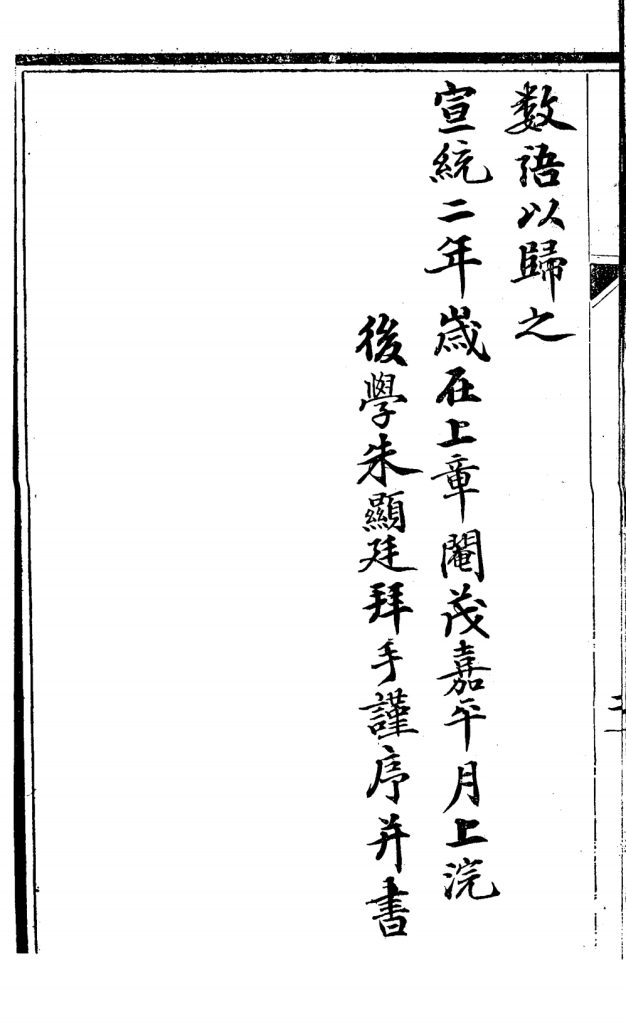 数語以歸之
宣統二年歲在上章閹茂嘉平月上浣
後學朱顯廷拜手謹序并書